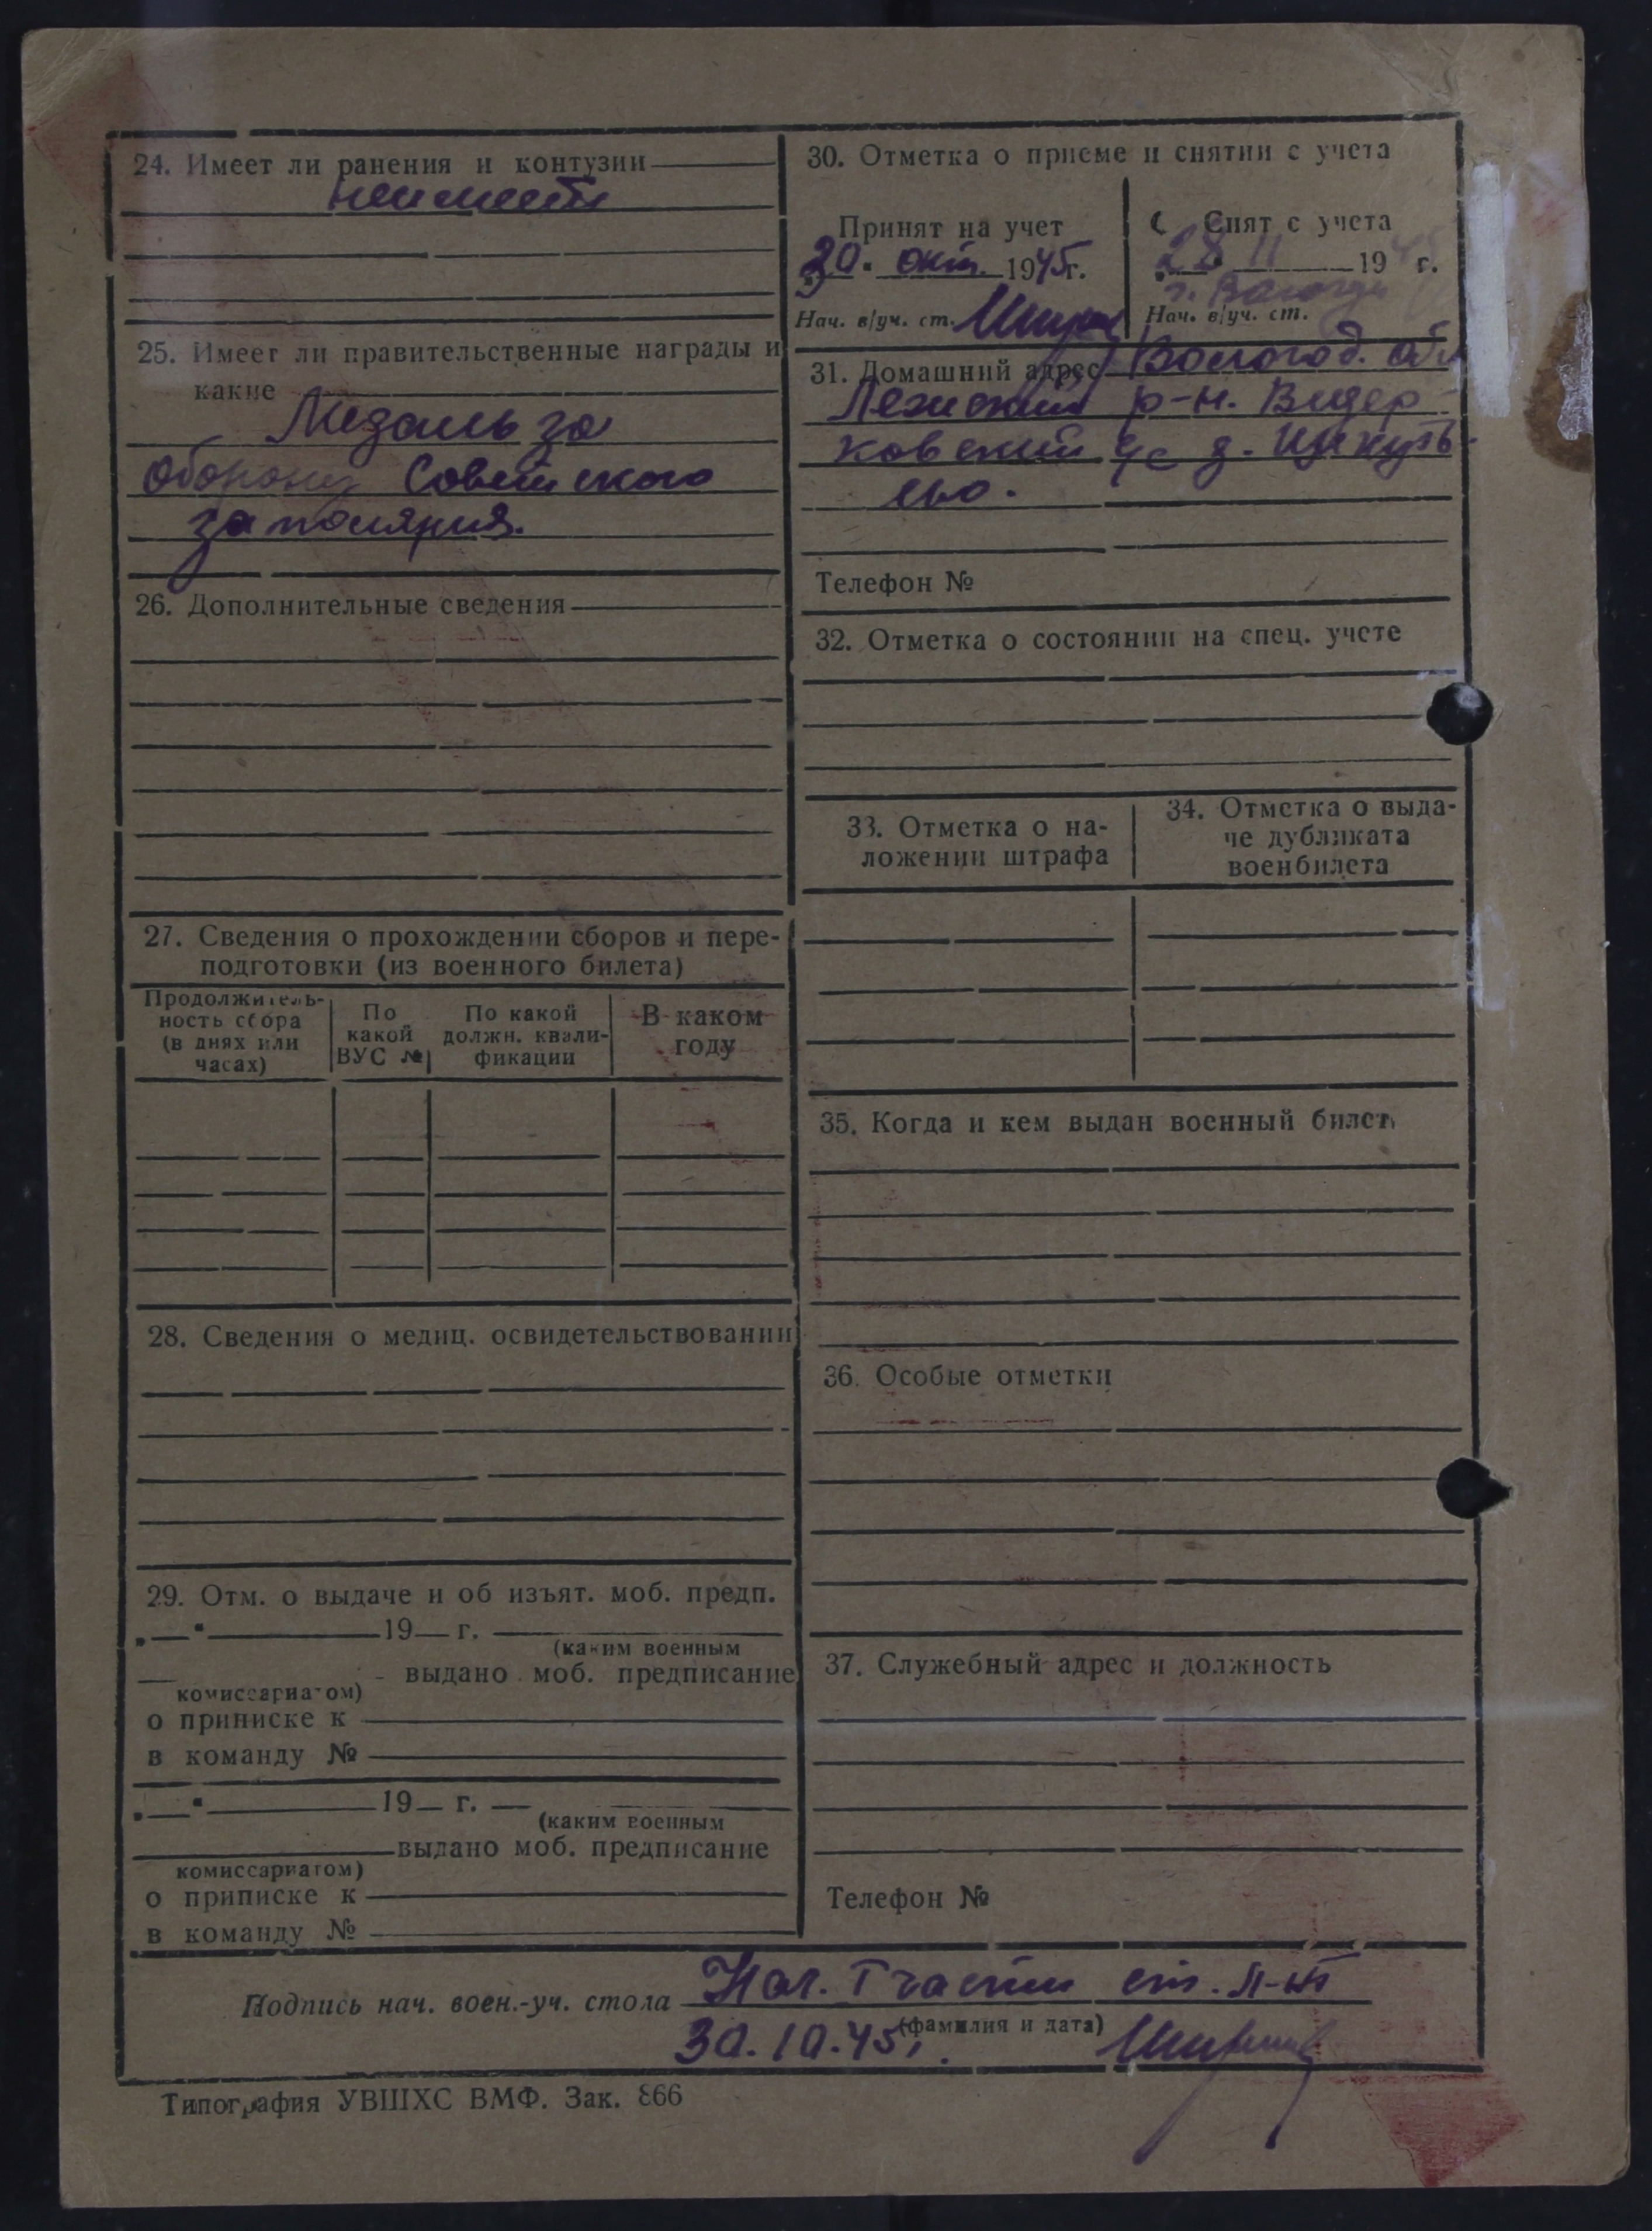 24. Имеет ли ранения и контузии
неимеет
25. Имеет ли правительственные награды и
какие
Медаль за
оборону Советского
заполярия.
26. Дополнительные сведения
27. Сведения о прохождении сборов и пере-
подготовки (из военного билета)
Продолжитель-
ность сбора
(в днях или
часах)
По
какой
ВУС №
По какой
должн. квали-
фикации
В каком
году
28. Сведения о медиц. освидетельствовании
29. Отм. о выдаче и об изъят. моб. предп.
„ “ 19 г.
(каким военным
выдано моб. предписание
комиссариатом)
о приписке к
в команду №
„ “ 19 г.
(каким военным
выдано моб. предписание
комиссариатом)
о приписке к
в команду №
30. Отметка о приеме и снятии с учета
Принят на учет
30. окт. 1945г.
Нач. в/уч. ст.
Снят с учета
28 11 1945 г.
г. Вологда
Нач. в/уч. ст.
31. Домашний адрес Вологод. обл
Лежский р-н.
ковский с/с д.
Телефон №
32. Отметка о состоянии на спец. учете
33. Отметка о на-
ложении штрафа
34. Отметка о выда-
че дубликата
военбилета
35. Когда и кем выдан военный билет
36. Особые отметки
37. Служебный адрес и должность
Телефон №
Подпись нач. воен.-уч. стола Нач. 1 части ст. л-нт
(фамилия и дата)
30.10.45г.
Типография УВШХС ВМФ. Зак. 866